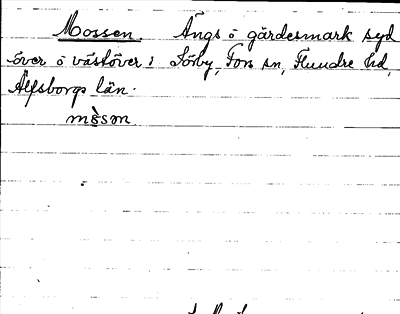 Mossen. Ängs o gärdesmark syd
över o västöver i Sörby, Fors sn, Flundre hd,
Älfsborgs län.
mòsən